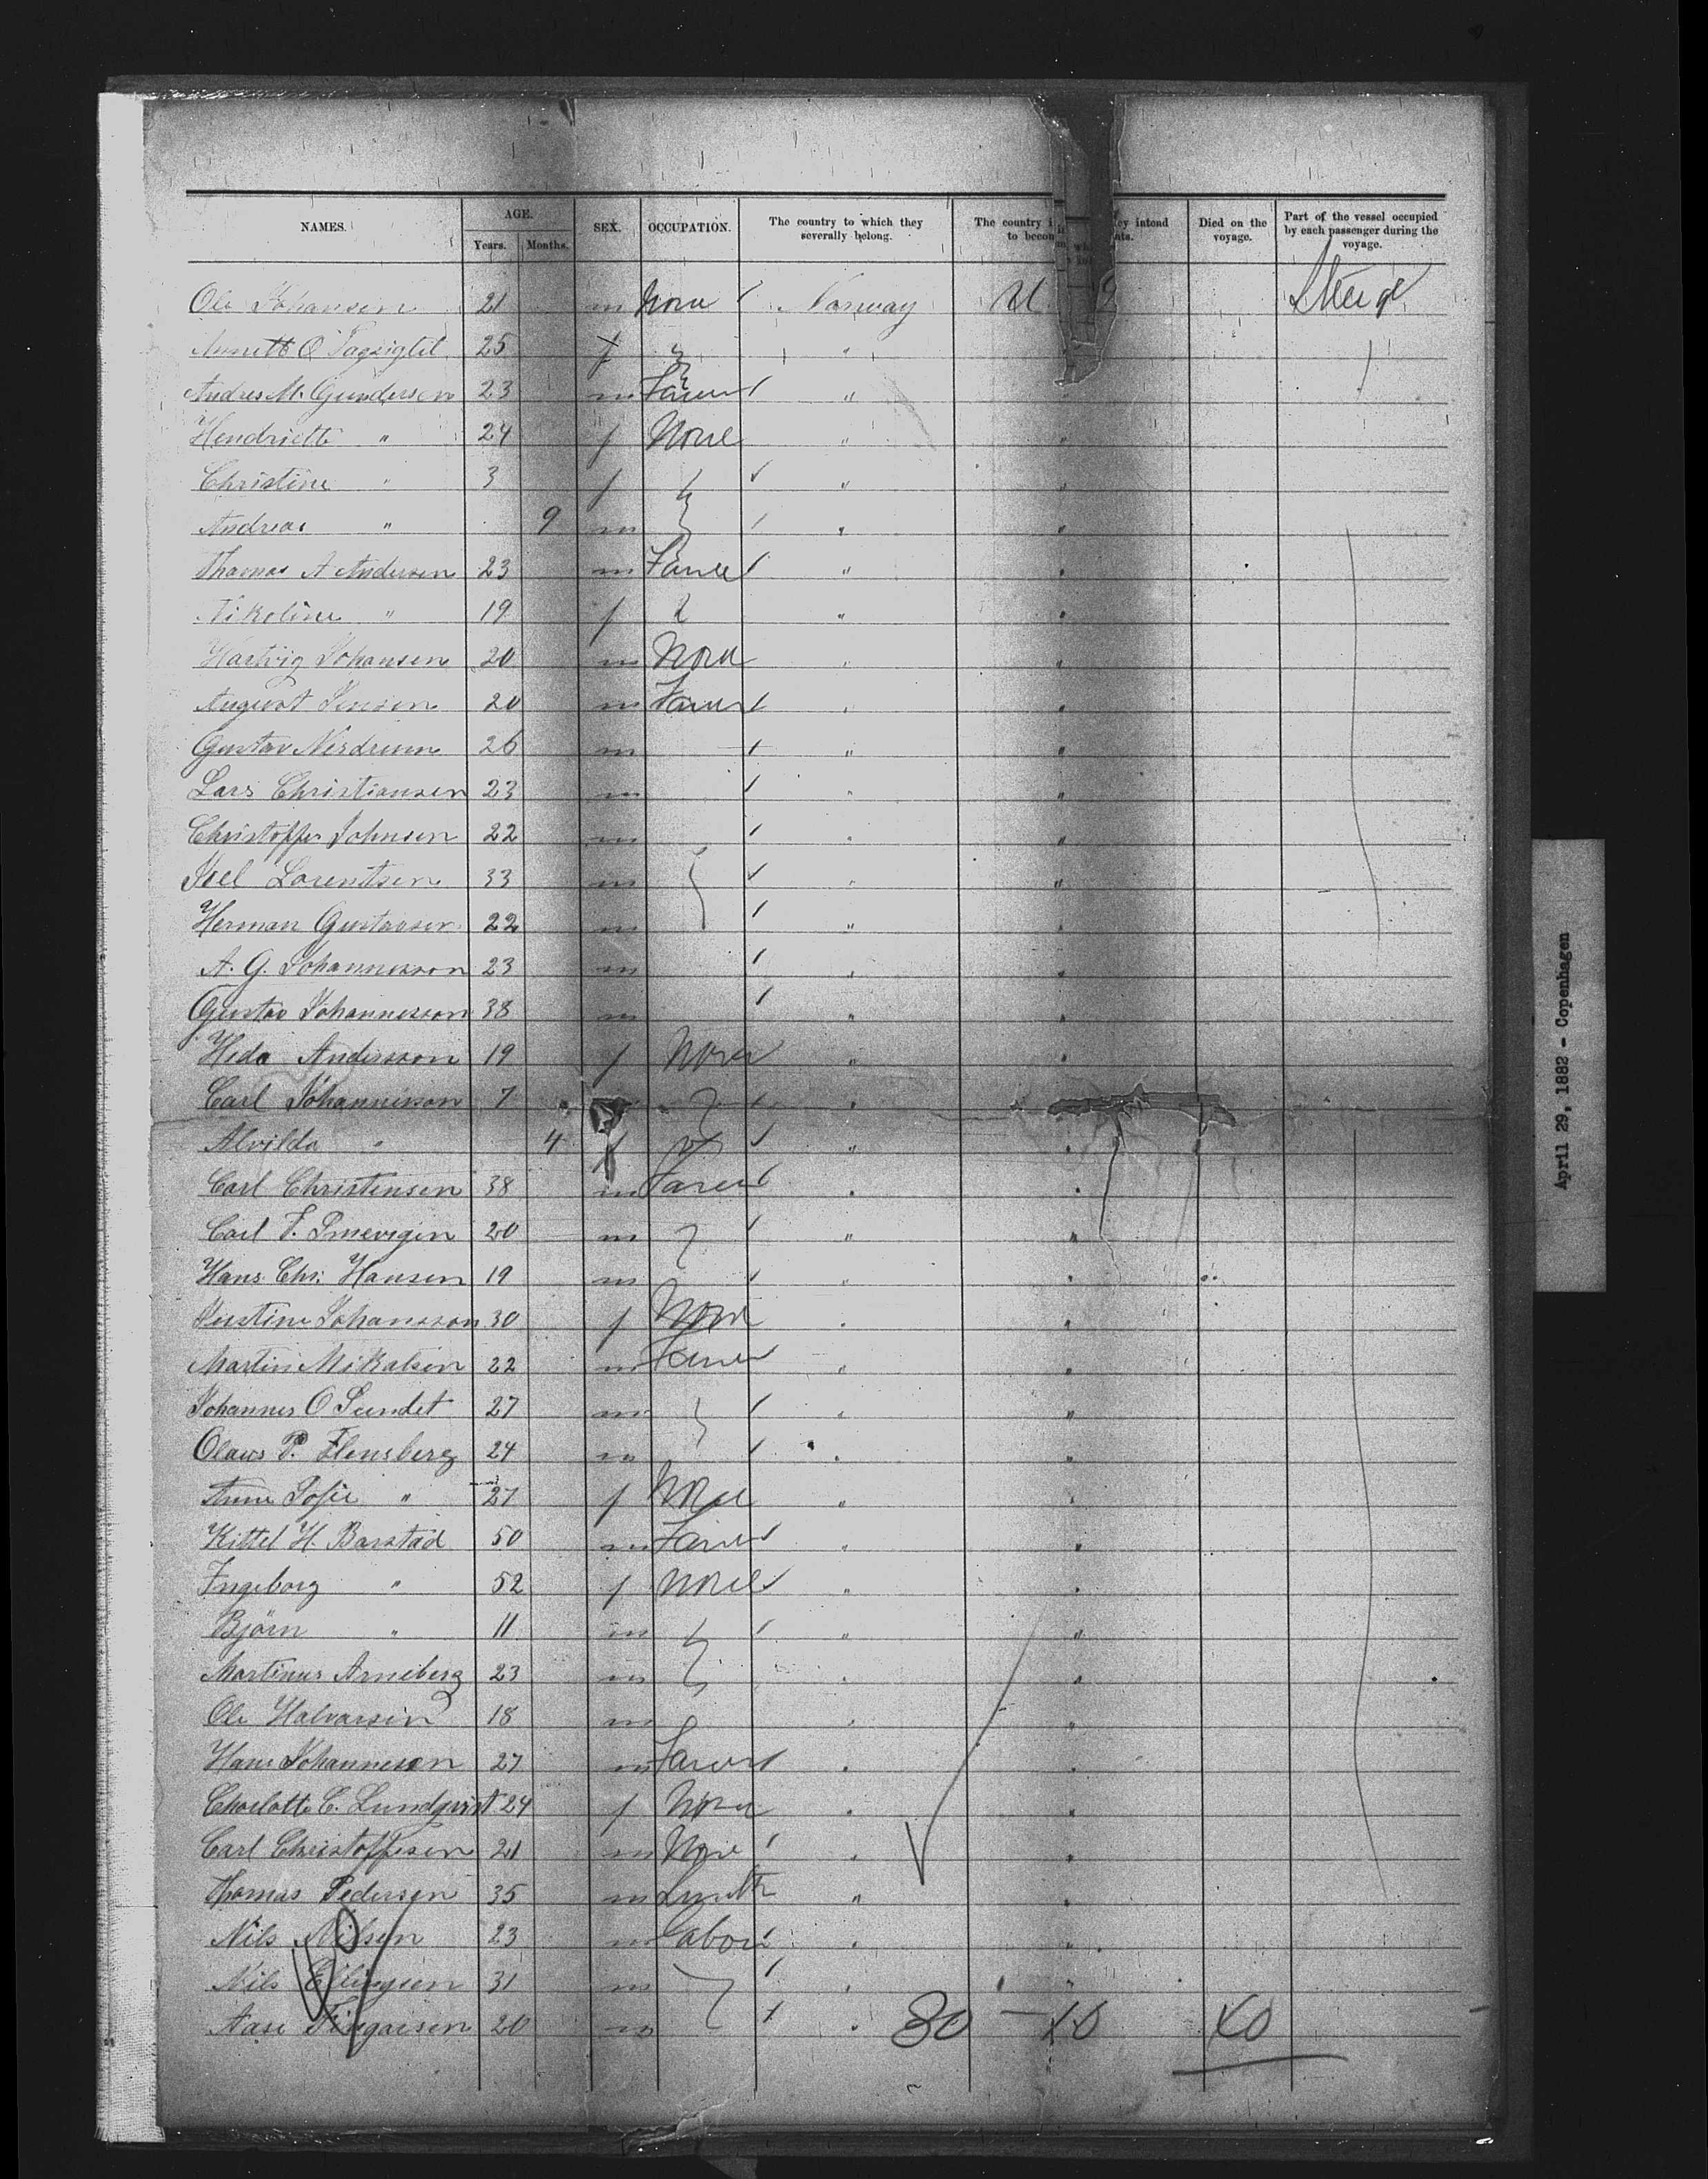 NAMES. AGE. SEX. OCCUPATION. The country to which they severally belong. The country i ey intend to becom nts. Died on the voyage. Part of the vessel occupied by each passenger during the voyage.
Years. Months.
Ole Johansen 21 m None Norway U Steerage
Annette O 25 f "
Andres M. Gundersen 23 m Farmer "
Hendriette " 24 f None " "
Christine " 3 f " "
Andreas " 9 m " "
Thomas A Andersen 23 m Farmer " "
Nikoline " 19 f " "
Hartvig Johansen 20 m None " "
August Jensen 20 m Farmer " "
Gustav Nerdrum 26 m " "
Lars Christiansen 23 m " "
Christoffer Johnsen 22 m " "
Lorentsen 33 m " "
Herman Gustavsen 22 m " "
A. G. Johannesson 23 m " "
Gustav Johannesson 38 m " "
Heda Andersson 19 f None " "
Carl Johannesson 7 "
Alvilda " 4 f " "
Carl Christensen 38 m Farmer " "
Carl F. 20 m " "
Hans Chr. Hansen 19 m " "
Justine Johansson 30 f None " "
Martin Mikalsen 22 m Farmer " "
Johannes O Sundet 27 m " "
Olaus P. Flensberg 24 m " "
Anne Sofie " 27 f None " "
Kittel H. Barstad 50 m Farmer " "
Ingeborg " 52 f None " "
Björn " 11 m " "
Martinus Arneberg 23 m " "
Ole Halvarsen 18 m " "
Hans Johannesen 27 m Farmer " "
Charlotte C. Lundqvist 24 f None " "
Carl Christoffersen 21 m None " "
Thomas Pedersen 35 m Smith " "
Nils Nilsen 23 m Labour " "
Nils Ellingsen 31 m " "
Aase 20 m "
40 80 - 40 40
April 29, 1882 - Copenhagen